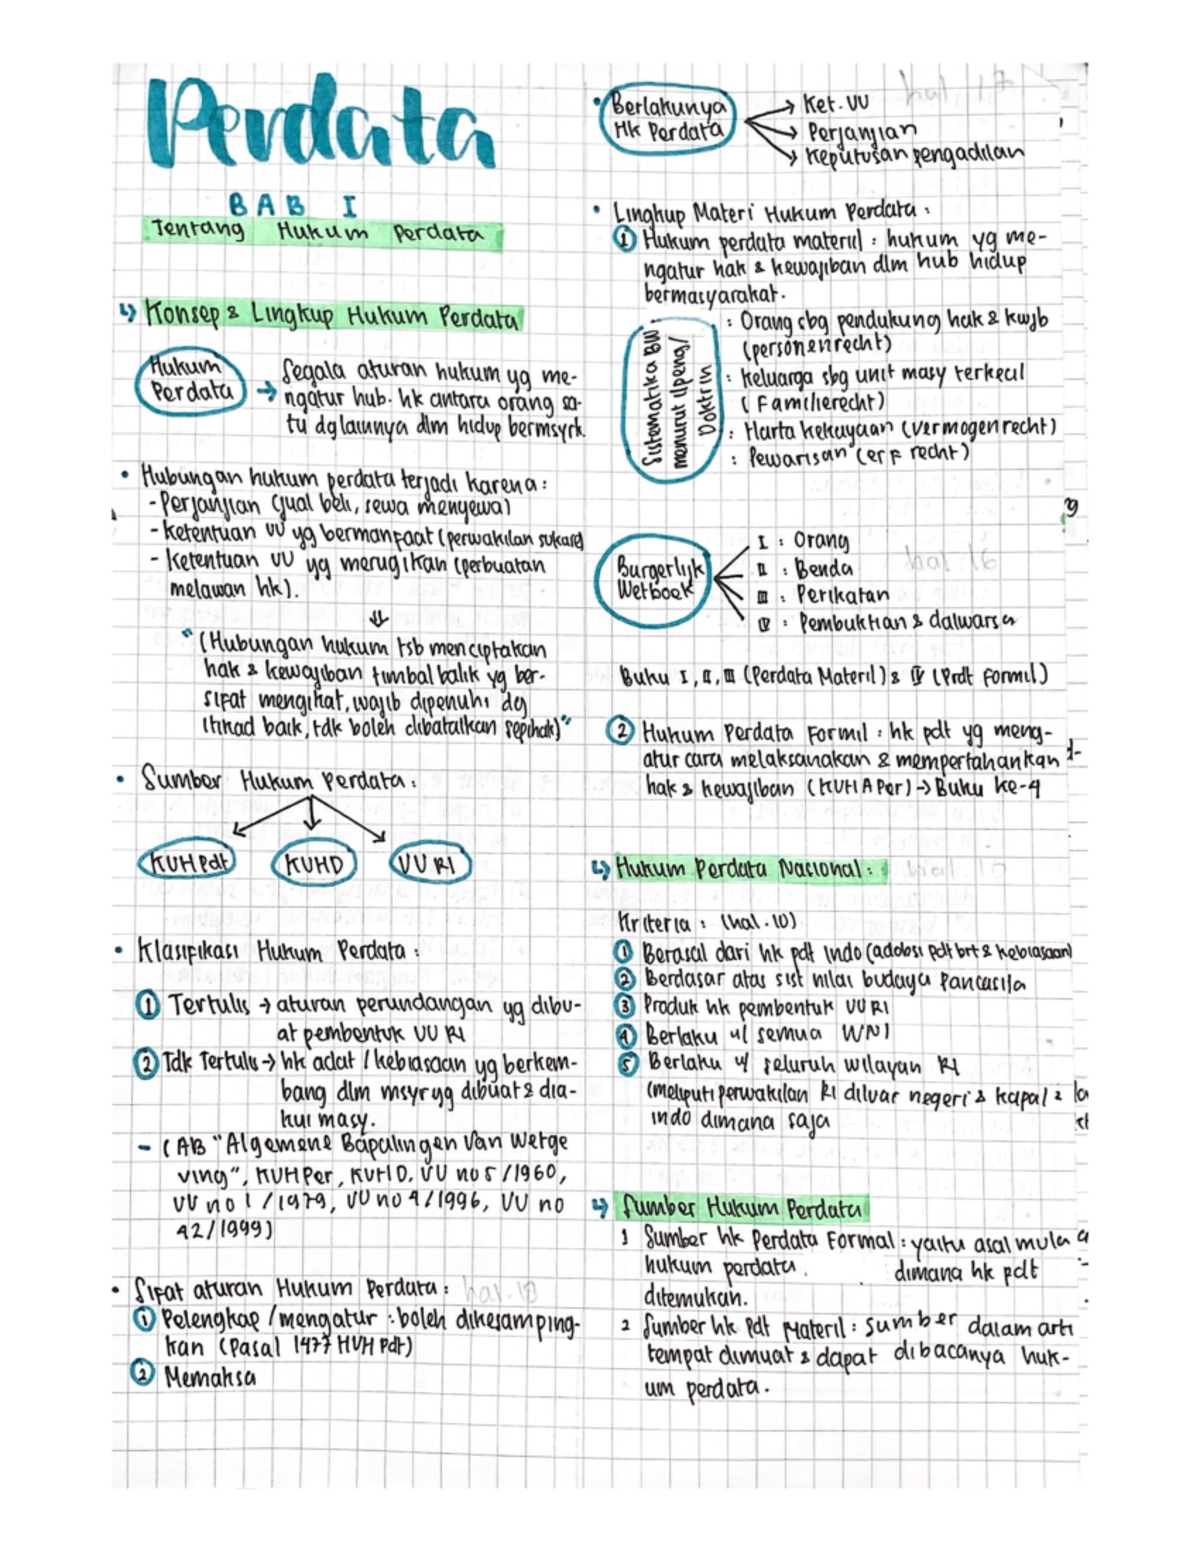 Perdata
BAB I
Tentang Hukum Perdata
↳ Konsep & Lingkup Hukum Perdata
Hukum
Perdata → Segala aturan hukum yg me-
ngatur hub. hk antara orang sa-
tu dg lainnya dlm hidup bermsyrk.
• Hubungan hukum perdata terjadi karena:
- Perjanjian (jual beli, sewa menyewa)
- Ketentuan UU yg bermanfaat (perwakilan sukarel)
- Ketentuan UU yg merugikan (perbuatan
melawan hk).
⇓
"(Hubungan hukum tsb menciptakan
hak & kewajiban timbal balik yg ber-
sifat mengikat, wajib dipenuhi dg
itikad baik, tdk boleh dibatalkan sepihak)"
• Sumber Hukum Perdata:
KUHPdt KUHD UU RI
• Klasifikasi Hukum Perdata:
① Tertulis → aturan perundangan yg dibu-
at pembentuk UU RI
② Tdk Tertulis → hk adat / kebiasaan yg berkem-
bang dlm msyr yg dibuat & dia-
kui masy.
- (AB "Algemene Bapalingen Van Wetge
ving", KUHPer, KUHD, UU no 5/1960,
UU no 1/1979, UU no 4/1996, UU no
42/1999)
• Sifat aturan Hukum Perdata: hal. 18
① Pelengkap / mengatur : boleh dikesamping-
kan (Pasal 1477 HUH Pdt)
② Memaksa
• Berlakunya
Hk Perdata
→ Ket. UU
→ Perjanjian
→ Keputusan pengadilan
• Lingkup Materi Hukum Perdata:
① Hukum perdata materiil : hukum yg me-
ngatur hak & kewajiban dlm hub hidup
bermasyarakat.
Sistematika BW
menurut Ilpeng/
Doktrin
: Orang sbg pendukung hak & kwjb
(personenrecht)
: Keluarga sbg unit masy terkecil
(Familierecht)
: Harta kekayaan (vermogenrecht)
: Pewarisan (erf recht)
Burgerlijk
Wetboek
I : Orang
II : Benda
III : Perikatan
IV : Pembuktian & dalwarsa
hal 16
Buku I, II, III (Perdata Materil) & IV (Prdt Formil)
② Hukum Perdata Formil : hk pdt yg meng-
atur cara melaksanakan & mempertahankan
hak & kewajiban (KUHAPer) → Buku ke-4
↳ Hukum Perdata Nasional: hal. 10
Kriteria : (hal. 10)
① Berasal dari hk pdt Indo (adobsi pdt brt & kebiasaan)
② Berdasar atas sist nilai budaya Pancasila
③ Produk hk pembentuk UU RI
④ Berlaku u/ semua WNI
⑤ Berlaku u/ seluruh wilayan RI
(meliputi perwakilan RI diluar negeri & kapal 2
indo dimana saja
↳ Sumber Hukum Perdata
1 Sumber hk Perdata Formal : yaitu asal mula
hukum perdata. dimana hk pdt
ditemukan.
2 Sumber hk Pdt Materil : sumber dalam arti
tempat dimuat & dapat dibacanya huk-
um perdata.